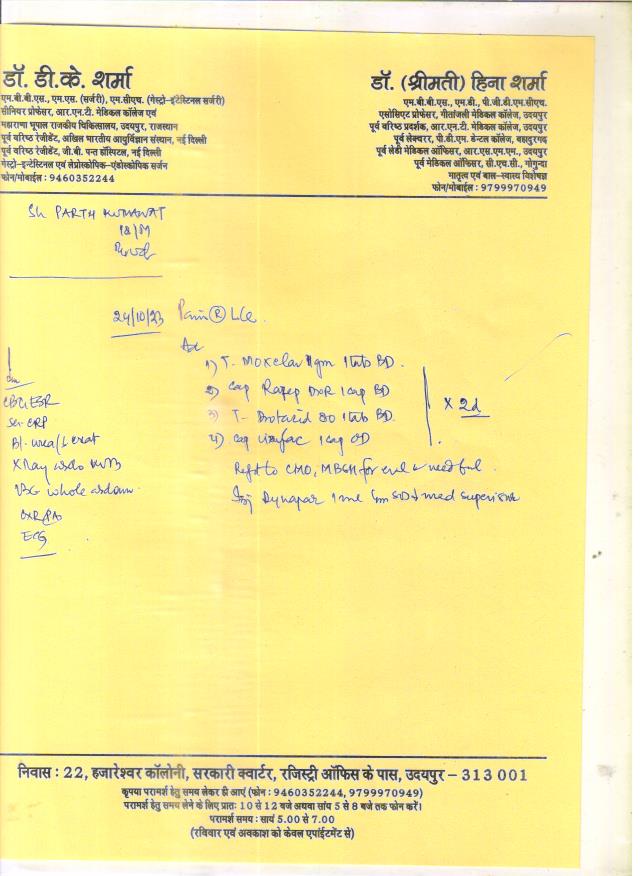 डॉ. डी.के. शर्मा
एम.बी.बी.एस., एम.एस. (सर्जरी), एम.सीएच. (गेस्ट्रो-इंटेस्टिनल सर्जरी)
सीनियर प्रोफेसर, आर.एन.टी. मेडिकल कॉलेज एवं
महाराणा भूपाल राजकीय चिकित्सालय, उदयपुर, राजस्थान
पूर्व वरिष्ठ रेजीडेंट, अखिल भारतीय आयुर्विज्ञान संस्थान, नई दिल्ली
पूर्व वरिष्ठ रेजीडेंट, जी.बी. पन्त हॉस्पिटल, नई दिल्ली
गेस्ट्रो-इन्टेस्टिनल एवं लेप्रोस्कोपिक-एंडोस्कोपिक सर्जन
फोन/मोबाईल : 9460352244
डॉ. (श्रीमती) हिना शर्मा
एम.बी.बी.एस., एम.डी., पी.जी.डी.एम.सीएच.
एसोसिएट प्रोफेसर, गीतांजली मेडिकल कॉलेज, उदयपुर
पूर्व वरिष्ठ प्रदर्शक, आर.एन.टी. मेडिकल कॉलेज, उदयपुर
पूर्व लेक्चरर, पी.डी.एम. डेन्टल कॉलेज, बहादुरगढ़
पूर्व लेडी मेडिकल ऑफिसर, आर.एस.एम.एम., उदयपुर
पूर्व मेडिकल ऑफिसर, सी.एच.सी., गोगुन्दा
मातृत्व एवं बाल-स्वास्थ्य विशेषज्ञ
फोन/मोबाईल : 9799970949
Sh PARTH KUMAWAT
18/M
24/10/23 Pain Ⓡ
Adv
1) T- MOXclav 1gm 1tab BD.
2) Cap DSR 1cap BD
3) T- 1tab BD.
4) Cap 1cap OD
X 2d
Refd to CMO, MBGH for eval & needful.
Inj Dynapar 1 amp Im & med supervision
CBC, ESR
Ser CRP
Bl. urea/S creat
X Ray abdo KUB
USG whole abdomen
CXR/PA
ECG
निवास : 22, हजारेश्वर कॉलोनी, सरकारी क्वार्टर, रजिस्ट्री ऑफिस के पास, उदयपुर – 313 001
कृपया परामर्श हेतु समय लेकर ही आएं (फोन : 9460352244, 9799970949)
परामर्श हेतु समय लेने के लिए प्रातः 10 से 12 बजे अथवा सांय 5 से 8 बजे तक फोन करें।
परामर्श समय : सायं 5.00 से 7.00
(रविवार एवं अवकाश को केवल एपांईटमेंट से)